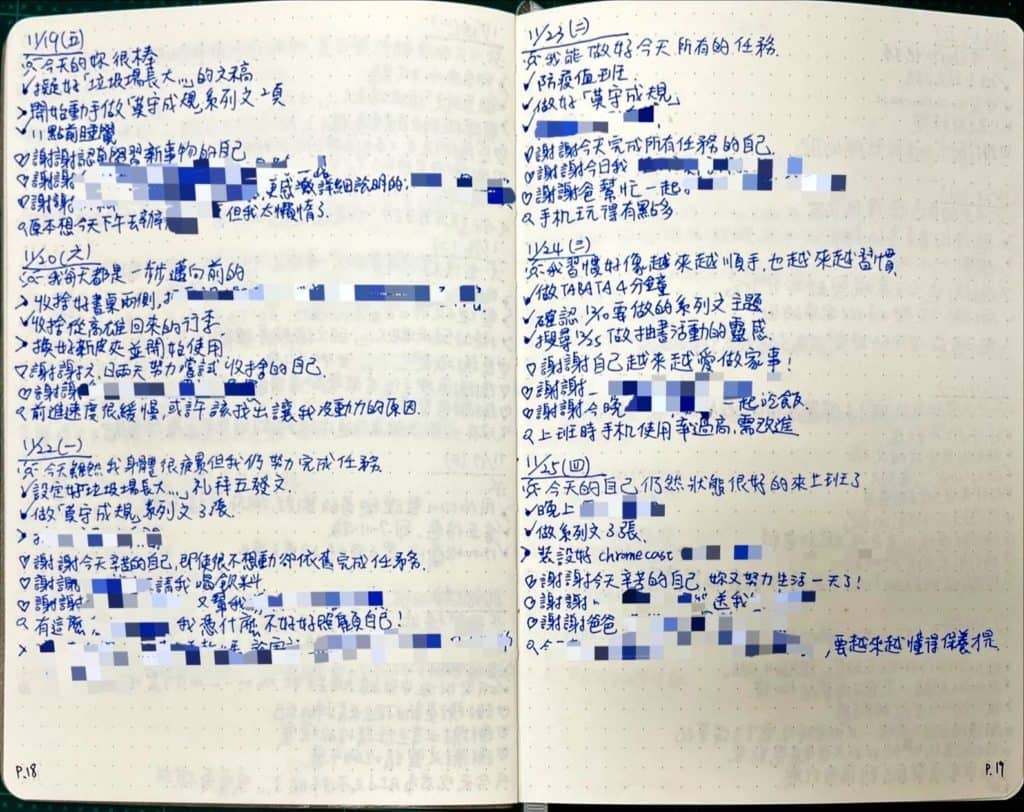 11/19(五)
※今天的妳很棒
✓擬好「垃圾場長大…」的文稿
>開始動手做「墨守成規」系列文2頁
✓11點前睡覺
♡謝謝認真學習新事物的自己
♡謝謝
♡謝謝 更感激詳細說明的
Q原本想今天下午去 但我太懶惰了
11/20(六)
※我每天都是一步步邁向前的
>收拾好書桌兩側
✓收拾從高雄回來的行李
>換好新皮夾並開始使用
♡謝謝 日兩天努力嘗試收拾的自己
♡謝謝
Q前進速度很緩慢,或許該找出讓我沒動力的原因.
11/22(一)
※今天雖然我身體很疲累但我仍努力完成任務
✓設定好垃圾場長大… 禮拜五發文.
✓做「墨守成規」系列文3張.
>
♡謝謝今天辛苦的自己,即使很不想動卻依舊完成任務.
♡謝謝 請我喝飲料
♡謝謝 又幫我
Q有這麼 我憑什麼不好好照顧自己!
>
P.18
11/23(二)
※我能做好今天所有的任務.
✓防疫值班
✓做好「墨守成規」
✓
♡謝謝今天完成所有任務的自己.
♡謝謝今日我
♡謝謝爸幫忙一起
Q手机玩得有點多
11/24(三)
※我習慣好像越來越順手,也越來越習慣
✓做TABATA4分鐘
✓確認12/10要做的系列文主題
✓搜尋 做抽書活動的靈感
♡謝謝自己越來越愛做家事!
♡謝謝
♡謝謝今晚 一起吃飯
Q上班時手机使用率過高,需改進
11/25(四)
※今天的自己仍然狀態很好的來上班了
✓晚上
✓做系列文3張.
>裝設好chromecast
♡謝謝今天辛苦的自己,妳又努力生活一天了!
♡謝謝 送我
♡謝謝爸爸
Q ,要越來越懂得保養才是
P.19